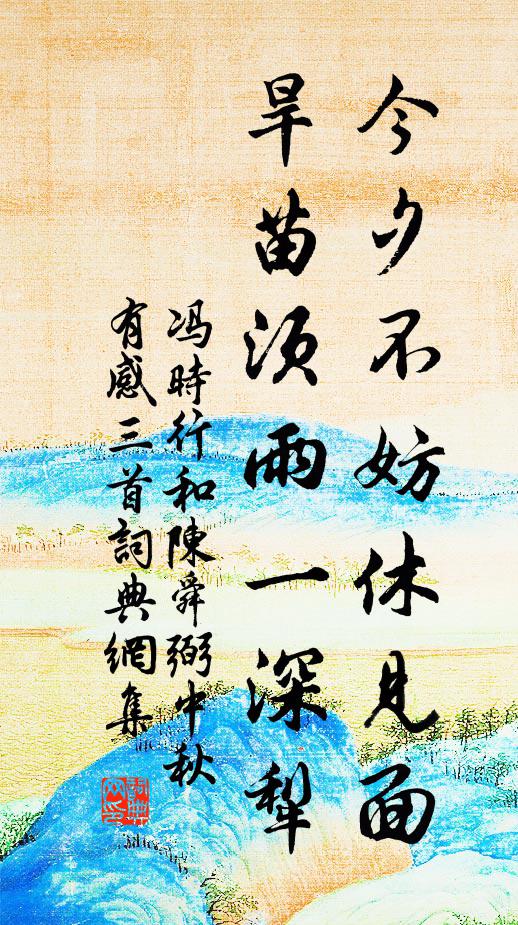 今夕不妨休見面
旱苗須雨一深犁
馮時行和陳舜弼中秋
有感三首詞典網集